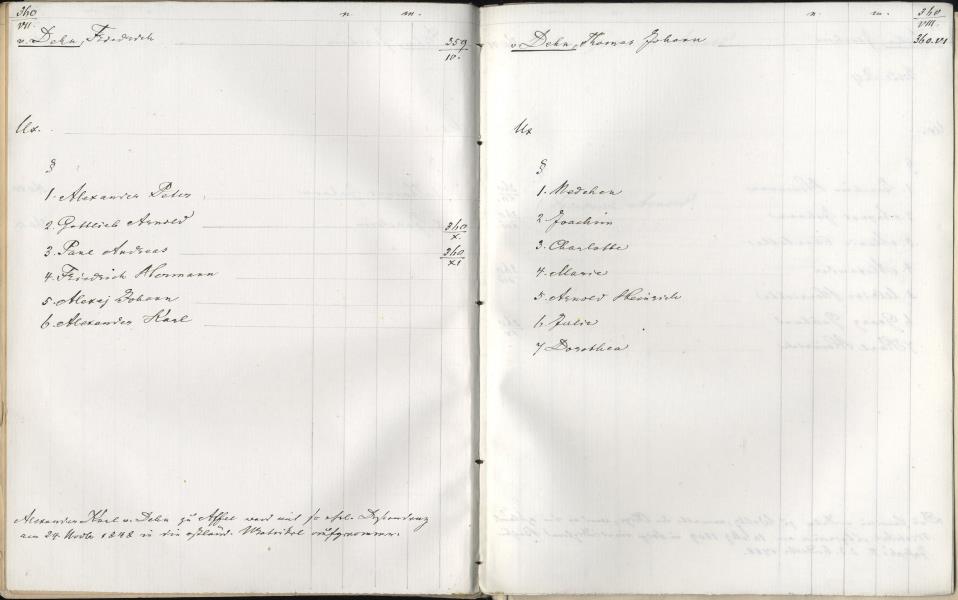 360
VII.
n. m.
v. Dehn, Friedrich 359
10.
Ux.
§
1. Alexander Peter
2. Gottlieb Arnold 360
X.
3. Paul Andreas 360
XI
4. Friedrich Hermann
5. Alexej Johann
6. Alexander Karl
Alexander Karl v. Dehn zu Assel ward mit
am 24 Novbr 1848 in die estländ. Matrikel aufgenommen.
n. m. 360
VIII.
v. Dehn, Thomas Johann 360.VI
Ux
§
1. Medchen
2 Joachim
3. Charlotte
4. Marie
5. Arnold Heinrich
6. Julie
7 Dorothea